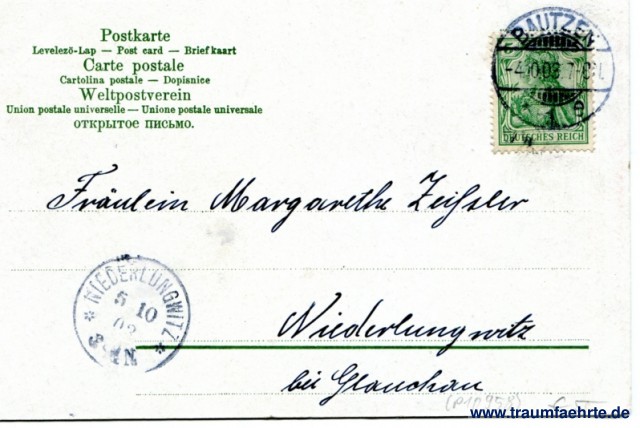 Postkarte
Levelező-Lap — Post card — Briefkaart
Carte postale
Cartolina postale — Dopisnice
Weltpostverein
Union postale universelle — Unione postale universale
ОТКРЫТОЕ ПИСЬМО.
BAUTZEN
DEUTSCHES REICH
Fräulein Margarethe Zeißler
NIEDERLUNGWITZ
5 10
Niederlungwitz
bei Glauchau
www.traumfaehrte.de